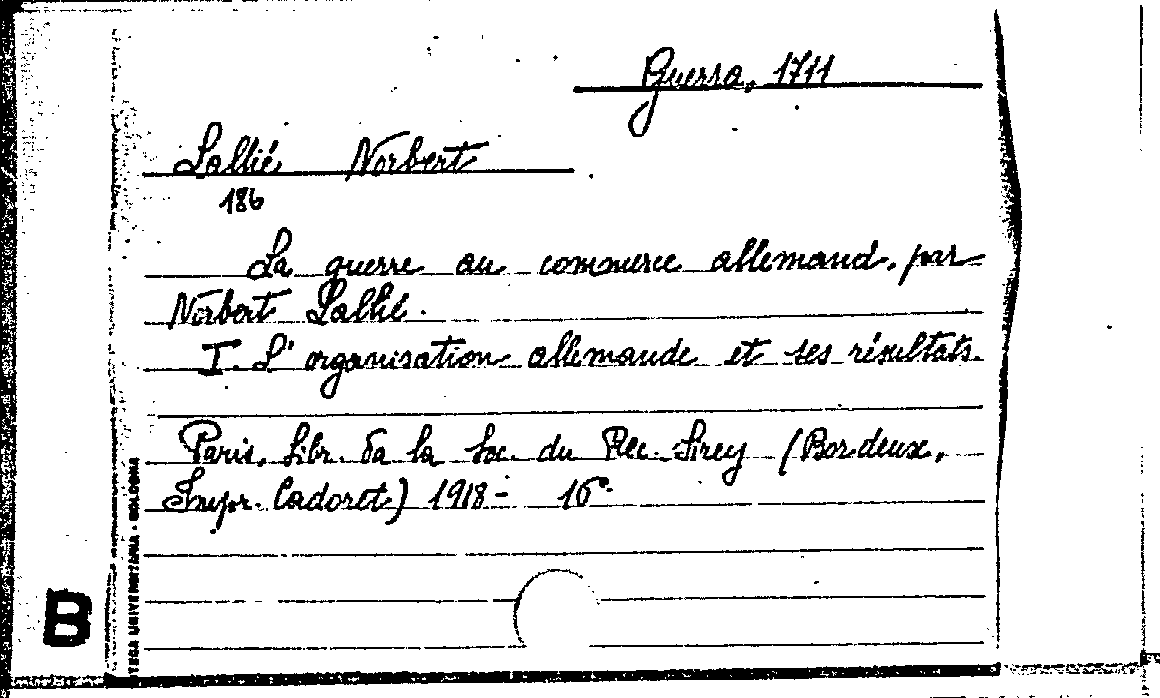 Guerra, 1711
Lallié Norbert
186
La guerre au commerce allemand, par
Norbert Lallié.
I. L'organisation allemande et ses résultats.
Paris, Libr. da la Soc. du Rec. Sirey (Bordeux,
Impr. Cadoret) 1918 - 16°.
B
TECA UNIVERSITARIA - BOLOGNA